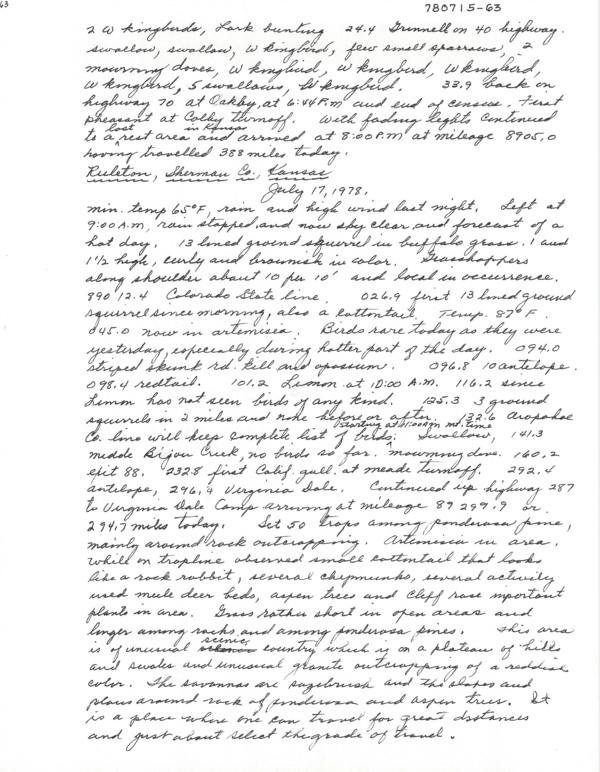 63
780715-63
2 W kingbirds, Lark bunting 24.4 Grinnell on 40 highway.
swallow, swallow, W kingbird, few small sparrows, 2
mourning doves, W kingbird, W kingbird, W kingbird,
W kingbird, 5 swallows, W kingbird. 33.9 back on
highway 70 at Oakley, at 6:44 P.M and end of census. First
pheasant at Colby turnoff. With fading lights continued
to last rest area in Kansas and arrived at 8:00 P.M at mileage 8905.0
having travelled 388 miles today.
Ruleton, Sherman Co., Kansas
July 17, 1978.
min. temp 65°F, rain and high wind last night. Left at
9:00 A.M, rain stopped, and now sky clear and forecast of a
hot day. 13 lined ground squirrel in buffalo grass, 1 and
1½ high, curly and brownish in color. Grasshoppers
along shoulder about 10 per 10' and local in occurrence.
890 12.4 Colorado State line. 026.9 first 13 lined ground
squirrel since morning, also a cottontail. Temp. 87°F.
045.0 now in artemisia. Birds rare today as they were
yesterday, especially during hotter part of the day. 094.0
striped skunk rd. kill and opossum. 096.8 10 antelope.
098.4 redtail. 101.2 Limon at 10:00 A.M. 116.2 since
Limon has not seen birds of any kind. 125.3 3 ground
squirrels in 2 miles and none before or after. 132.6 Arapahoe
Co. line will keep complete list of birds, starting at 11:00 A.M mt. time Swallow, 141.3
middle Bijou Creek, no birds so far. mourning dove. 160.2
exit 88. 232.8 first Calif. gull at meade turnoff. 292.4
antelope, 296.4 Virginia Dale. Continued up highway 287
to Virginia Dale Camp arriving at mileage 89 299.9 or
294.7 miles today. Set 50 traps among ponderosa pine,
mainly around rock outcropping. Artemisia in area.
While on trapline observed small cottontail that looks
like a rock rabbit, several chipmunks, several activily
used mule deer beds, aspen trees and cliff rose important
plants in area. Grass rather short in open areas and
longer among rocks, and among ponderosa pines. This area
is of unusual scenic country which is on a plateau of hills
and swales and unusual granite outcropping of a reddish
color. The savannas are sagebrush and the slopes and
plains around rock of ponderosa and aspen trees. It
is a place where one can travel for great distances
and just about select the grade of travel.